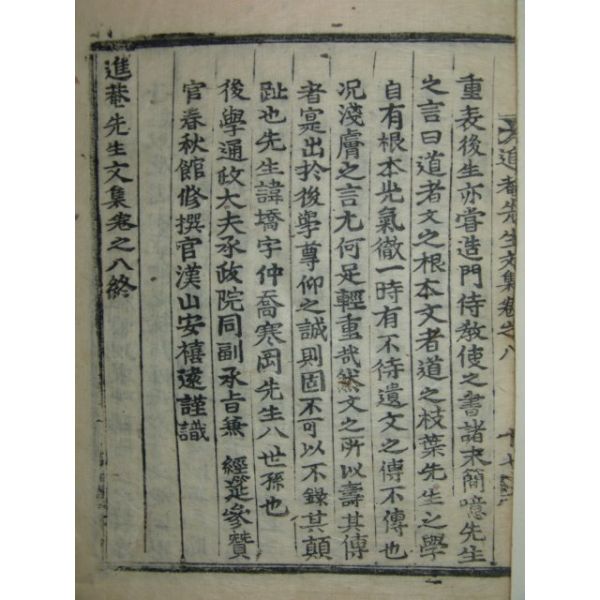 進菴先生文集卷之八
十七
重表後生亦嘗造門侍教使之書諸末簡噫先生
之言曰道者文之根本文者道之枝葉先生之學
自有根本光氣徹一時有不待遺文之傳不傳也
况淺膚之言尤何足輕重哉然文之所以壽其傳
者寔出於後學尊仰之誠則固不可以不錄其顛
趾也先生諱墧字仲喬寒岡先生八世孫也
後學通政大夫承政院同副承旨兼 經筵參贊
官春秋館修撰官漢山安禧遠謹識
進菴先生文集卷之八終